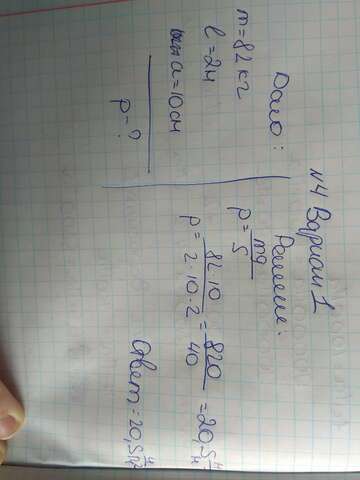 N4 Вариан 1
Дано:
m = 82 кг
l = 2м
a = 10 см
p - ?
Решение:
p = mg/S
p = 82·10/2·10·2 = 820/40 = 20,5 н/м
Ответ: 20,5